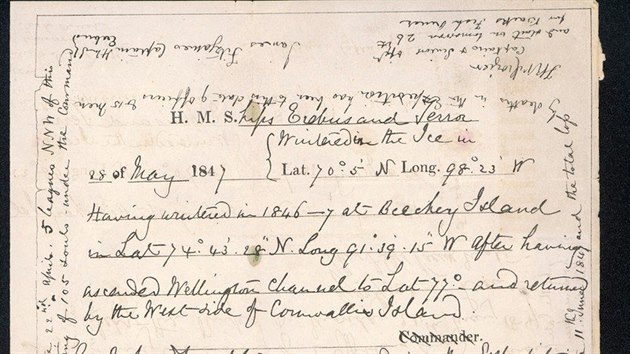 H. M. S. hips Erebus and Terror
Wintered in the Ice in
28 of May 1847 Lat. 70° 5' N Long. 98° 23' W
Having wintered in 1846–7 at Beechey Island
in Lat 74° 43' 28" N. Long 91° 39' 15" W after having
ascended Wellington Channel to Lat 77° – and returned
by the West side of Cornwallis Island.
Commander.
22nd April. 5 leagues NNW of this
of 105 souls under the Command
James Fitzjames Captain HMS
Erebus
Captain & Senior Offr
and start on tomorrow 26th
for Backs Fish River
by deaths in the Expedition has been to this date 9 officers & 15 men
11th June 1847 and the total loss